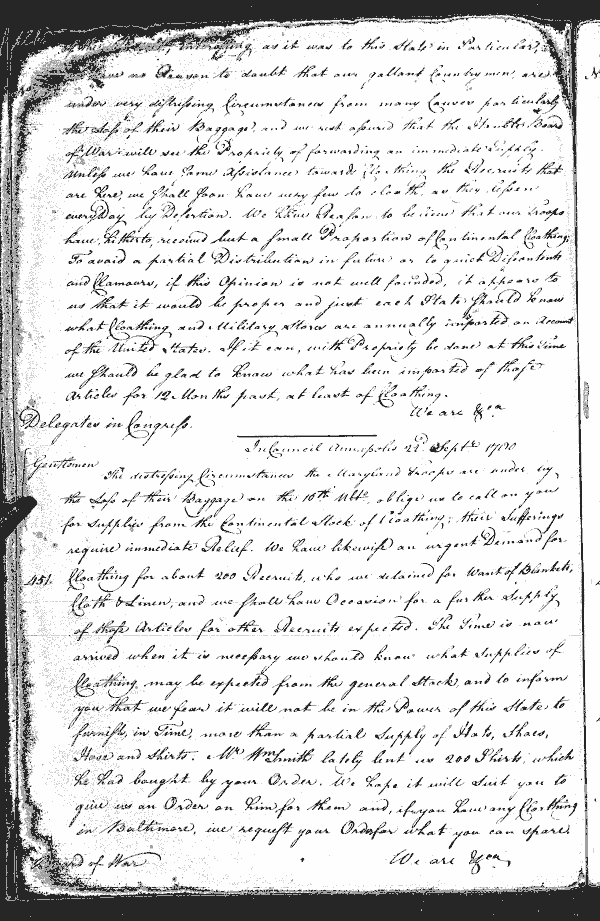 as it was to this State in Particular,
have no Reason to doubt that our gallant Countrymen, are
under very distressing Circumstances from many Causes particularly
the Loss of their Baggage, and we rest assured that the Board
of War will see the Propriety of forwarding an immediate Supply.
Unless we have some Assistance towards Cloathing the Recruits that
are here, we shall soon have very few to cloath, as they lessen
every Day by Desertion. We have Reason to believe that our Troops
have, hitherto, received but a small Proportion of Continental Cloathing.
To avoid a partial Distribution in future or to quiet Discontents
and Clamours, if this Opinion is not well founded, it appears to
us that it would be proper and just each State should know
what Cloathing and Military Stores are annually imported on Account
of the United States. If it can, with Propriety be done at this Time
we should be glad to know what has been imported of those
Articles for 12 Months past, at least of Cloathing.
We are &ca
Delegates in Congress.
In Council Annapolis 22d Septr 1780
Gentlemen
The distressing Circumstances the Maryland Troops are under by
the Loss of their Baggage on the 16th Ulto, oblige us to call on you
for Supplies from the Continental Stock of Cloathing; their Sufferings
require immediate Relief. We have likewise an urgent Demand for
451. Cloathing for about 200 Recruits, who we detained for Want of Blankets,
Cloth & Linen, and we shall have Occasion for a further Supply
of those Articles for other Recruits expected. The Time is now
arrived when it is necessary we should know what Supplies of
Cloathing may be expected from the general Stock, and to inform
you that we fear it will not be in the Power of this State to
furnish, in Time, more than a partial Supply of Hats, Shoes,
Hose and Shirts. Mr Wm Smith lately lent us 200 Shirts, which
he had bought by your Order. We hope it will suit you to
give us an Order on him for them and, if you have any Cloathing
in Baltimore, we request your Order for what you can spare.
We are &ca
of War